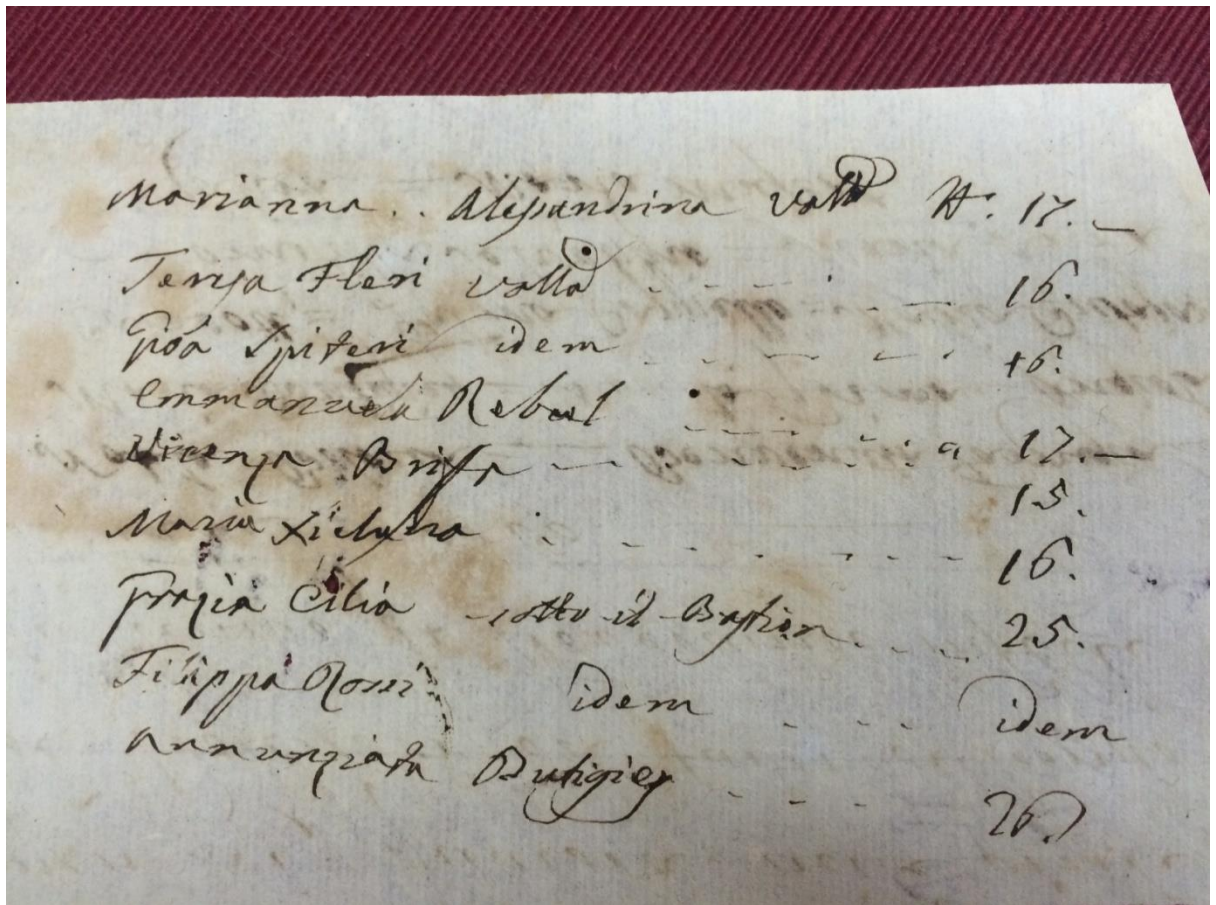 Marianna .. Alessandrina Vallta No. 17. _
Teresa Fleri Vallta - - - - - 16.
Gioa Spiteri idem - - - - 16.
Emmanuela Rebul - - - - a 17. _
Vicenza Briffa - - - - - 15.
Maria - - - - - - 16.
Grazia Cilia sotto il Bastion - - - 25.
Filippa Rossi idem - - - idem
Annunziata Butigieg - - - - 26.